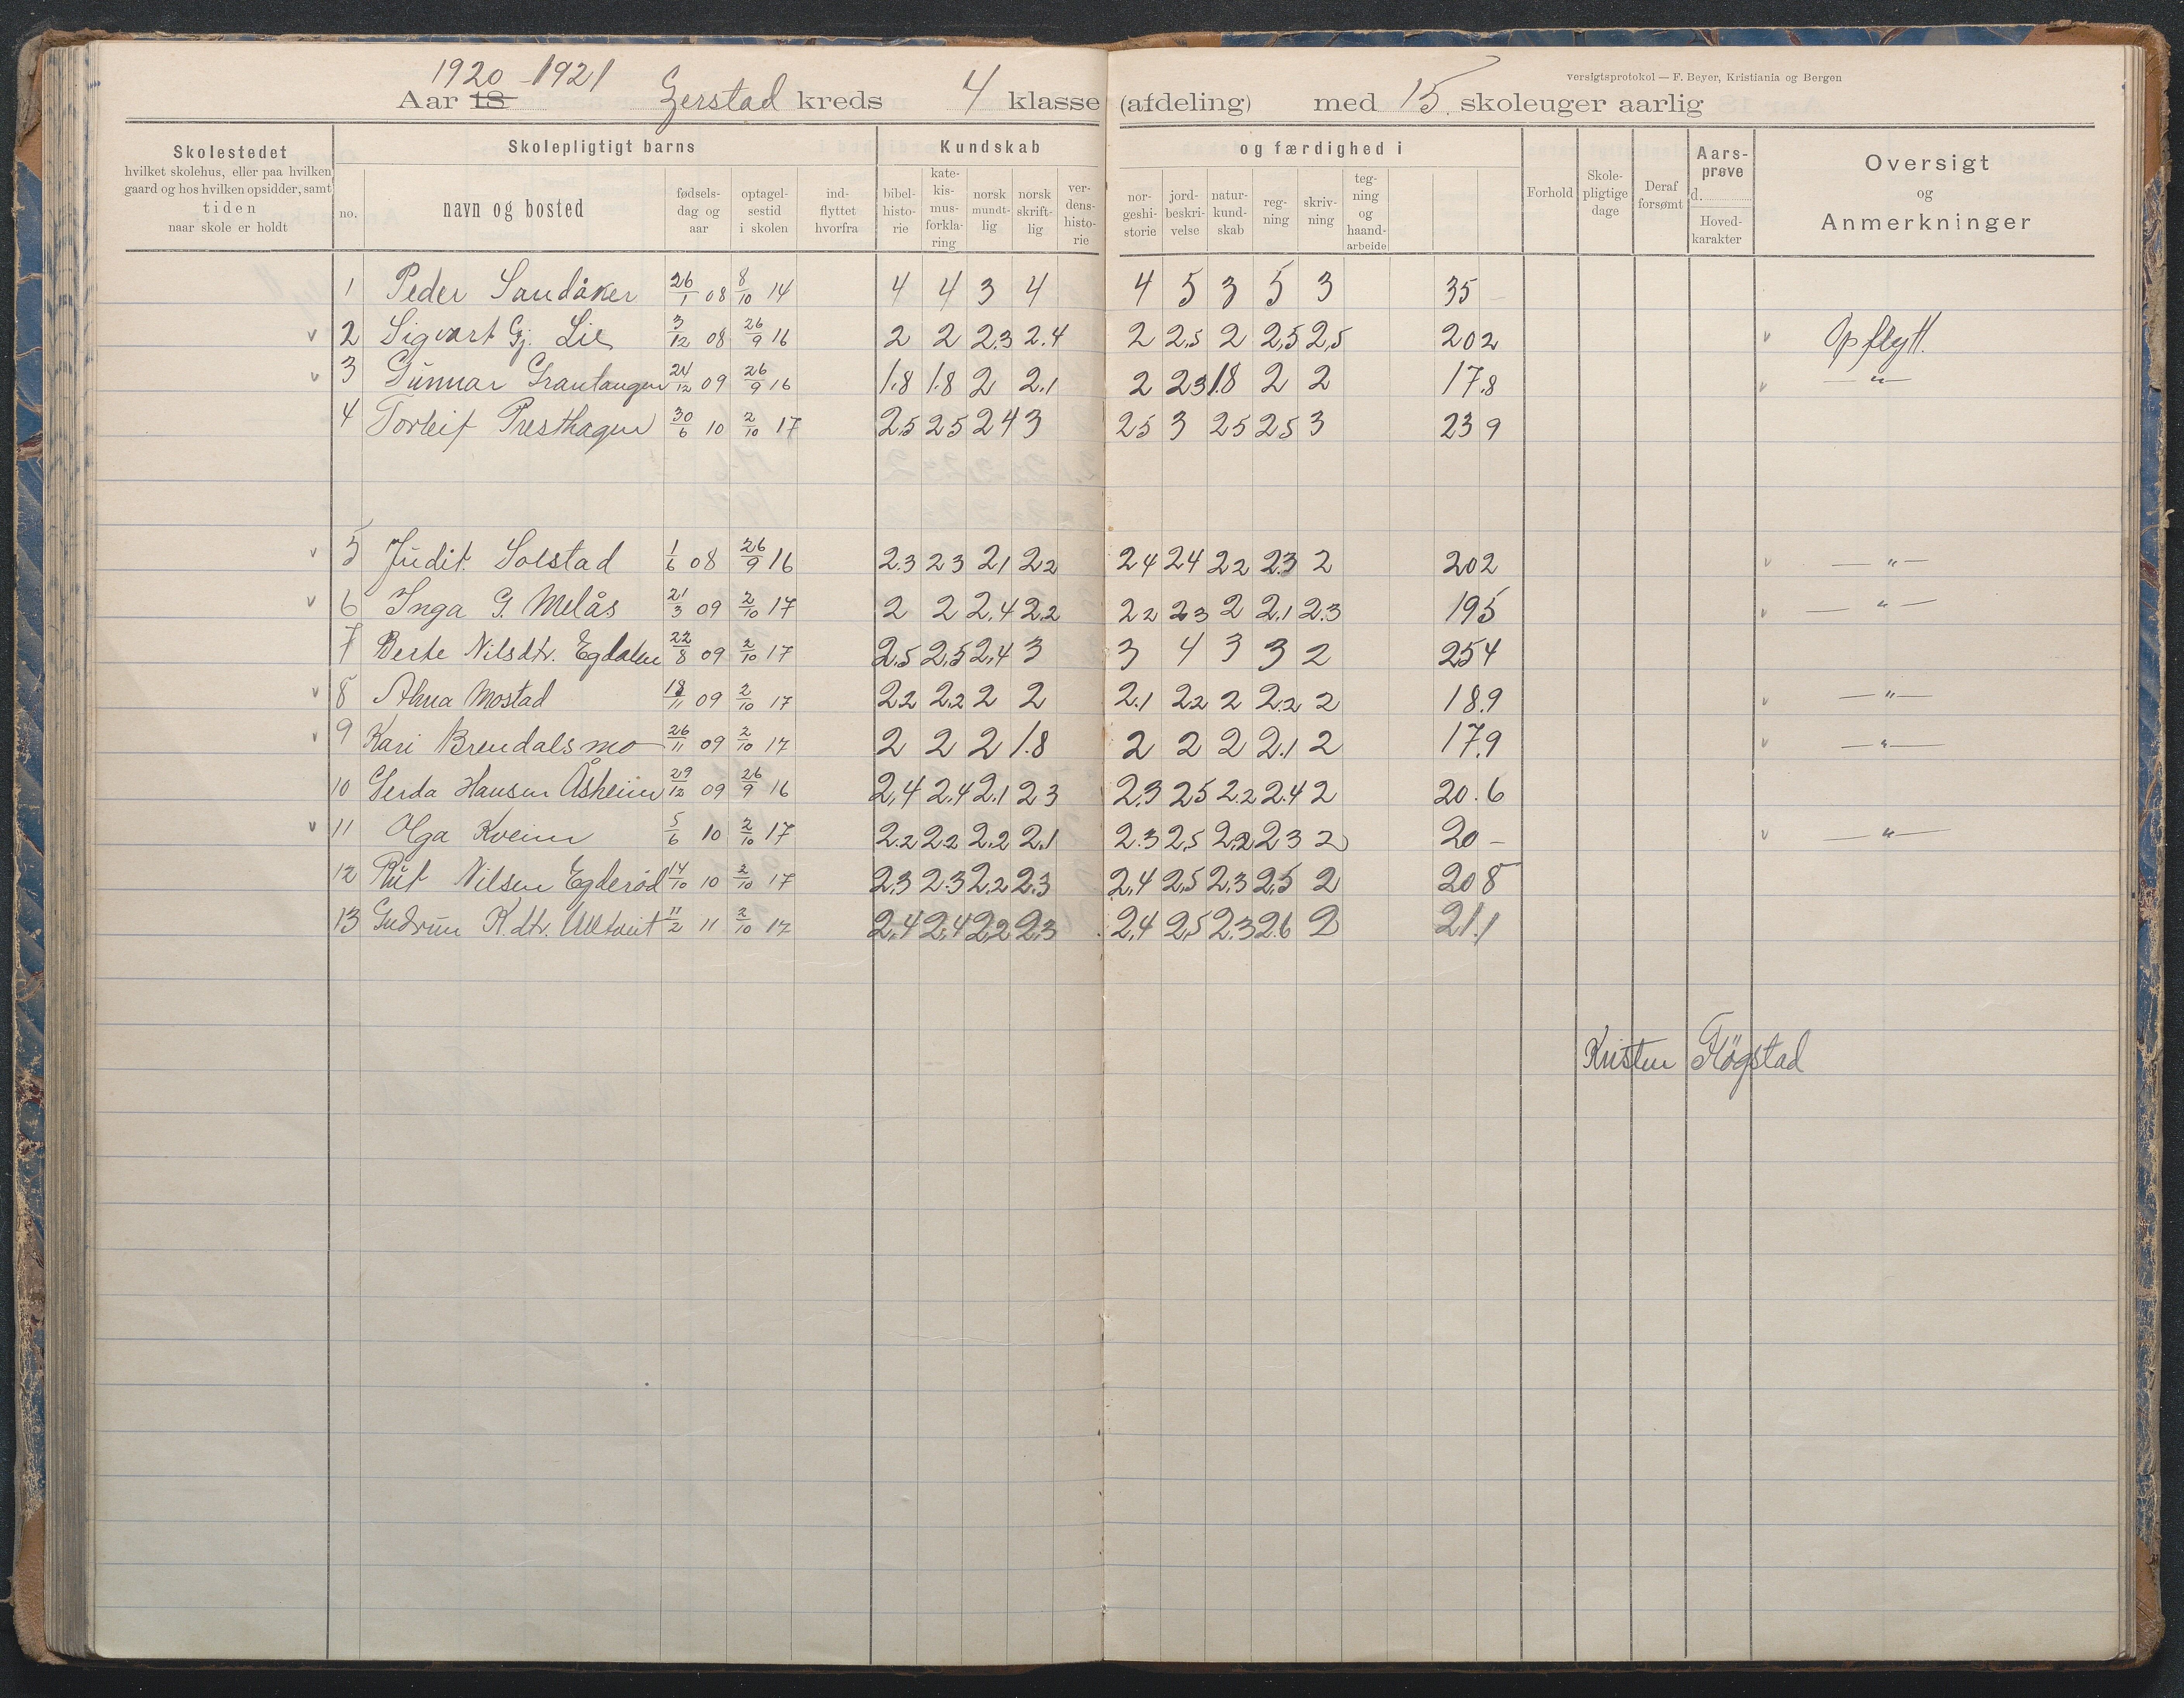 versigtsprotokol — F. Beyer, Kristiania og Bergen
1920-1921
Aar 18 Gerstad kreds 4 klasse (afdeling) med 15. skoleuger aarlig
Skolestedet
hvilket skolehus, eller paa hvilken
gaard og hos hvilken opsidder, samt
tiden
naar skole er holdt
Skolepligtigt barns
no.
navn og bosted
fødsels-
dag og
aar
optagel-
sestid
i skolen
ind-
flyttet
hvorfra
Kundskab
bibel-
histo-
rie
kate-
kis-
mus-
forkla-
ring
norsk
mundt-
lig
norsk
skrift-
lig
ver-
dens-
histo-
rie
og færdighed i
nor-
geshi-
storie
jord-
beskri-
velse
natur-
kund-
skab
reg-
ning
skriv-
ning
teg-
ning
og
haand-
arbeide
Forhold
Skole-
pligtige
dage
Deraf
forsømt
Aars-
prøve
d.
Hoved-
karakter
Oversigt
og
Anmerkninger
1 Peder Sandåker 26/1 08 8/10 14 4 4 3 4 4 5 3 5 3 35 –
v 2 Sigvart Gj. Lie 3/12 08 26/9 16 2 2 2.3 2.4 2 2,5 2 2,5 2,5 202 v Opflytt.
v 3 Gunnar Grantangen 24/12 09 26/9 16 1.8 1.8 2 2.1 2 23 1.8 2 2 17.8 v — " —
4 Torleif Presthagen 30/6 10 2/10 17 2,5 25 24 3 25 3 25 25 3 239
v 5 Judit Solstad 1/6 08 26/9 16 2.3 23 21 22 24 24 22 23 2 202 v — " —
v 6 Inga G. Melås 21/3 09 2/10 17 2 2 2.4 2.2 22 23 2 2.1 2.3 195 v — " —
7 Berte Nilsdtr. Egdalen 22/8 09 2/10 17 2,5 2,5 2,4 3 3 4 3 3 2 254
v 8 Anna Mostad 18/11 09 2/10 17 22 2.2 2 2 2.1 22 2 2.2 2 18.9 v — " —
v 9 Kari Brendalsmo 26/11 09 2/10 17 2 2 2 1.8 2 2 2 2.1 2 17.9 v — " —
10 Gerda Hansen Åsheim 29/12 09 26/9 16 2,4 2.4 2.1 23 2.3 25 2.2 2.4 2 20.6
v 11 Olga Kveim 5/6 10 2/10 17 2.2 2.2 2,2 2,1 2.3 2,5 2,2 23 2 20 – v — " —
12 Rut Nilsen Egderød 14/10 10 2/10 17 2,3 2.3 2,2 2.3 2,4 2,5 2,3 2,5 2 208
13 Gudrun K.dtr. Ulltveit 11/2 11 2/10 17 2,4 2,4 2,2 2,3 2,4 2,5 2.3 2.6 2 21.1
Kristen Fløgstad